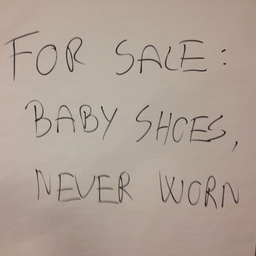 FOR SALE:
BABY SHOES,
NEVER WORN